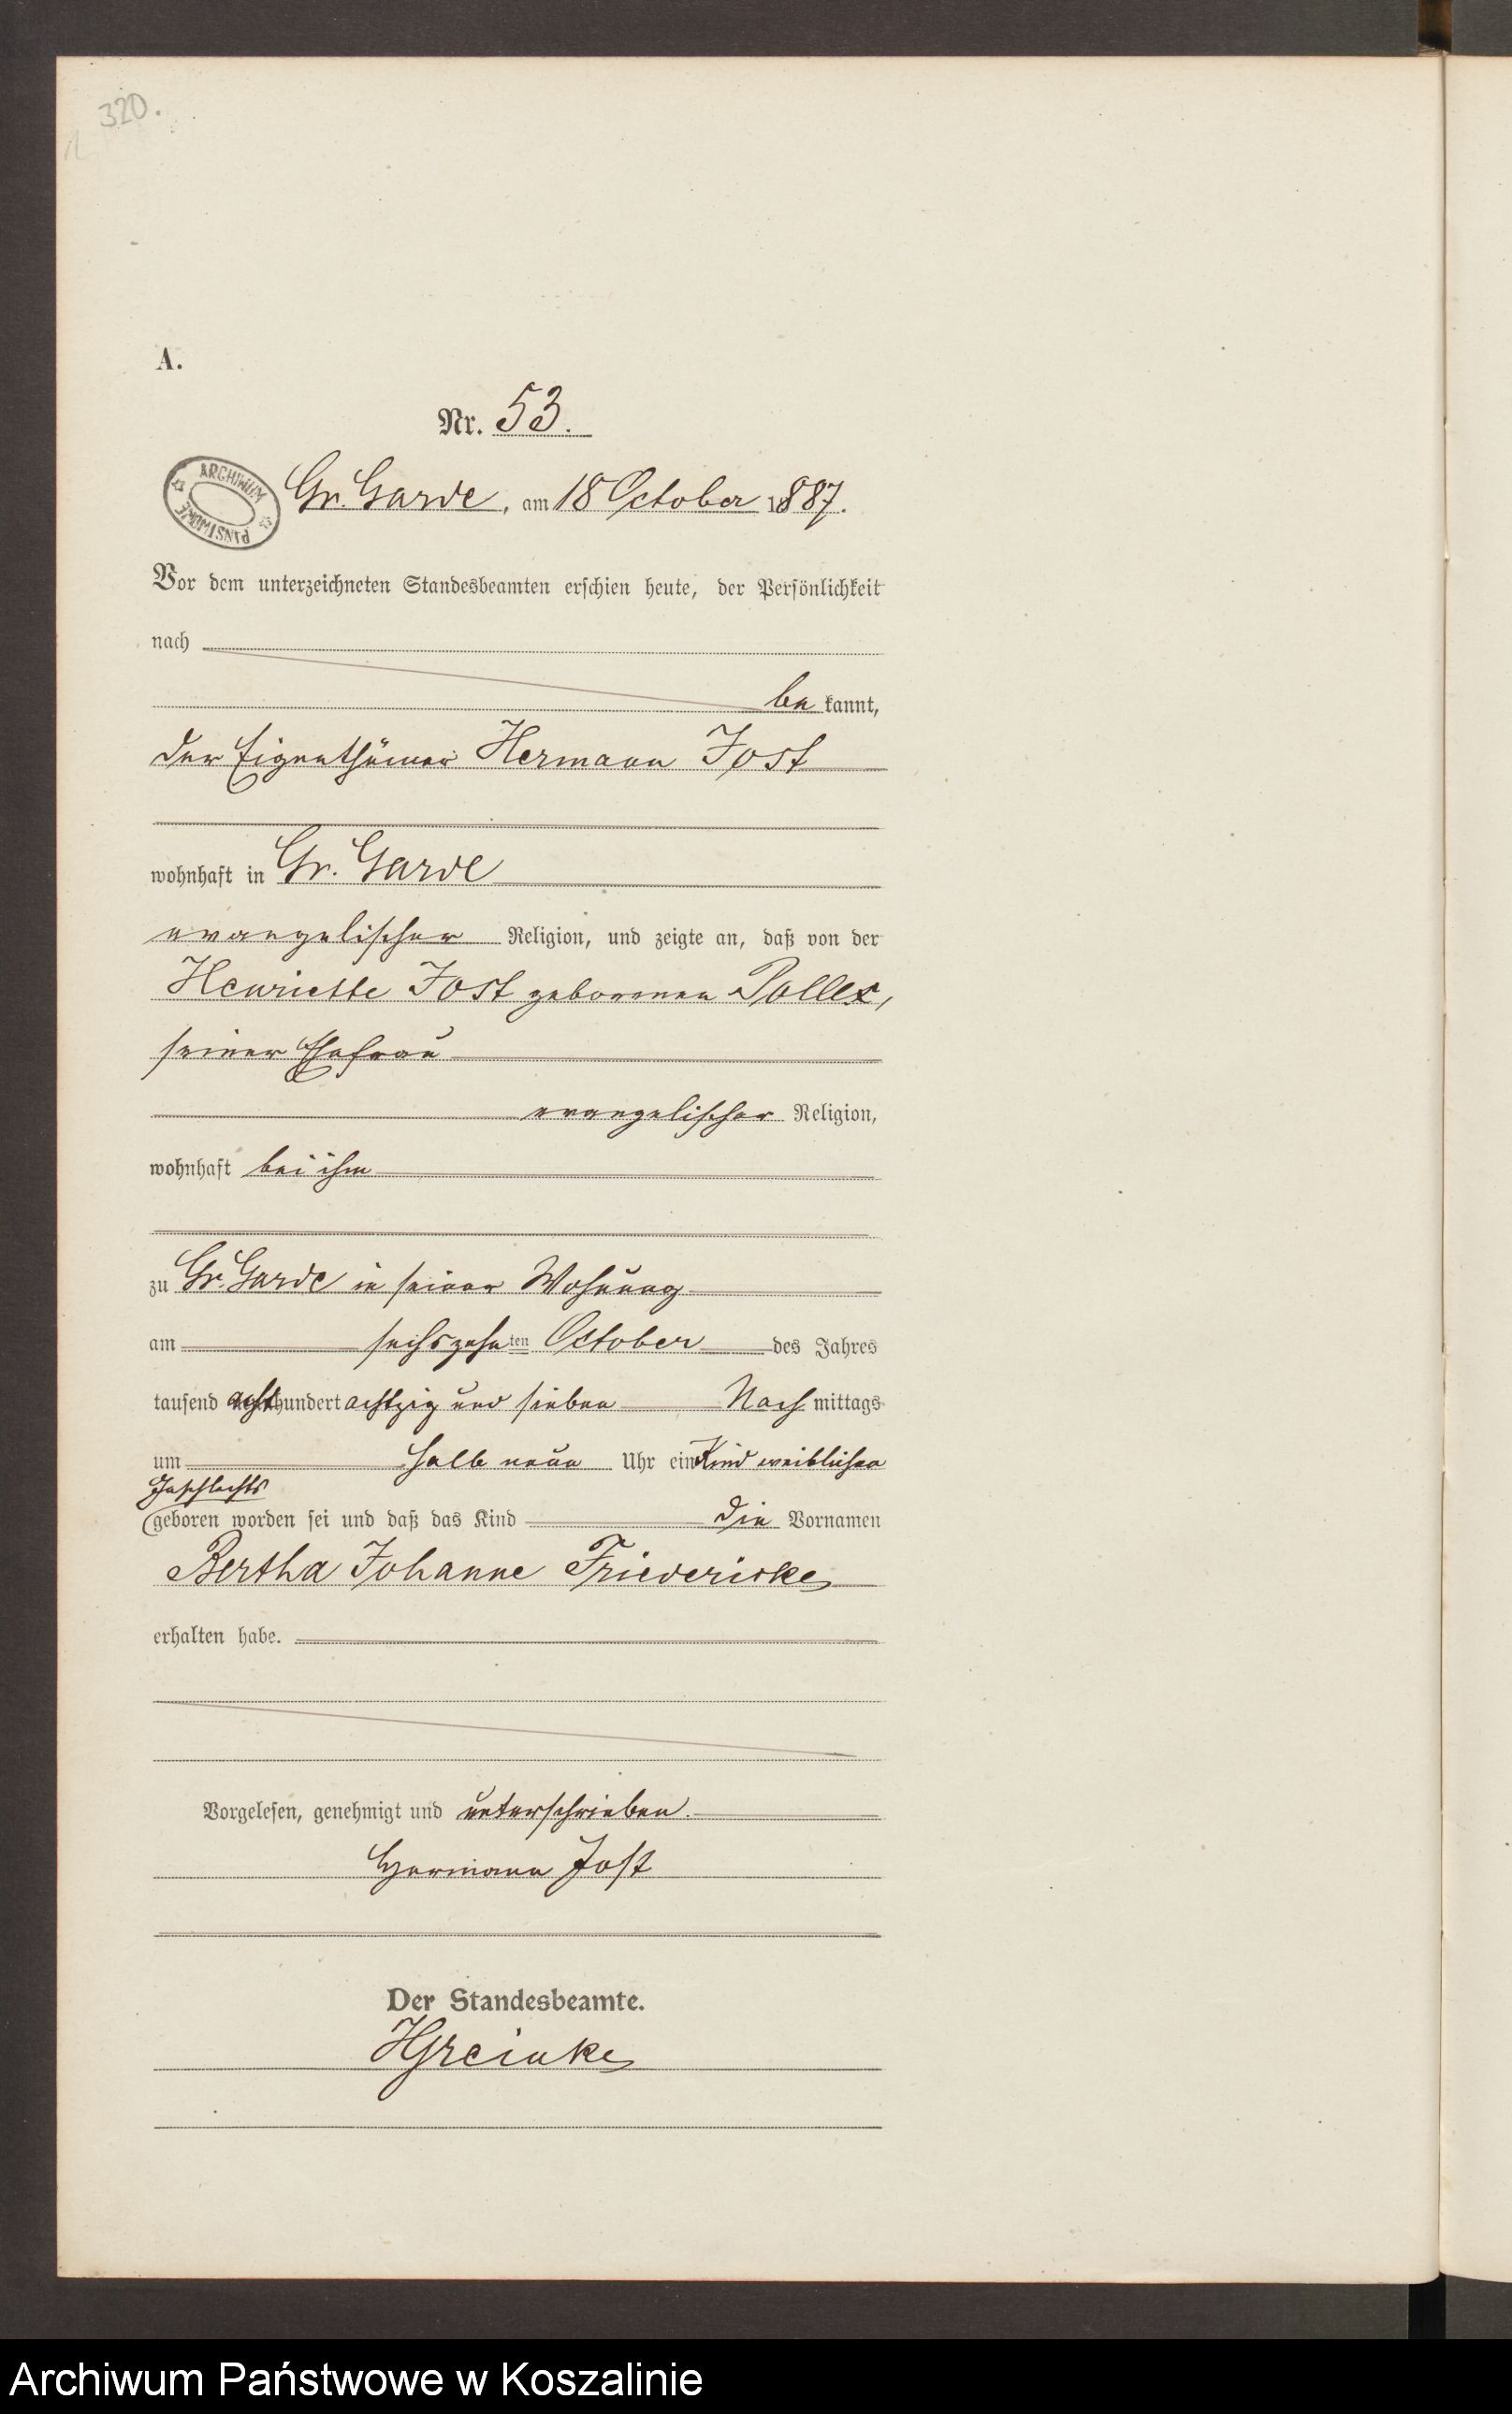 320.
A.
Nr. 53.
ARCHIWUM PAŃSTWOWE
Gr. Garde, am 18 October 1887.
Vor dem unterzeichneten Standesbeamten erschien heute, der Persönlichkeit
nach
be kannt,
der Eigenthümer Hermann Jost
wohnhaft in Gr. Garde
evangelischer Religion, und zeigte an, daß von der
Henriette Jost geborenen Pollex,
seiner Ehefrau
evangelischer Religion,
wohnhaft bei ihm
zu Gr. Garde in seiner Wohnung
am sechszehn ten October des Jahres
tausend acht hundert achtzig und sieben Nach mittags
um halb neun Uhr ein Kind weiblichen
Geschlechts
geboren worden sei und daß das Kind die Vornamen
Bertha Johanne Friedericke
erhalten habe.
Vorgelesen, genehmigt und unterschrieben.
Hermann Jost
Der Standesbeamte.
Archiwum Państwowe w Koszalinie